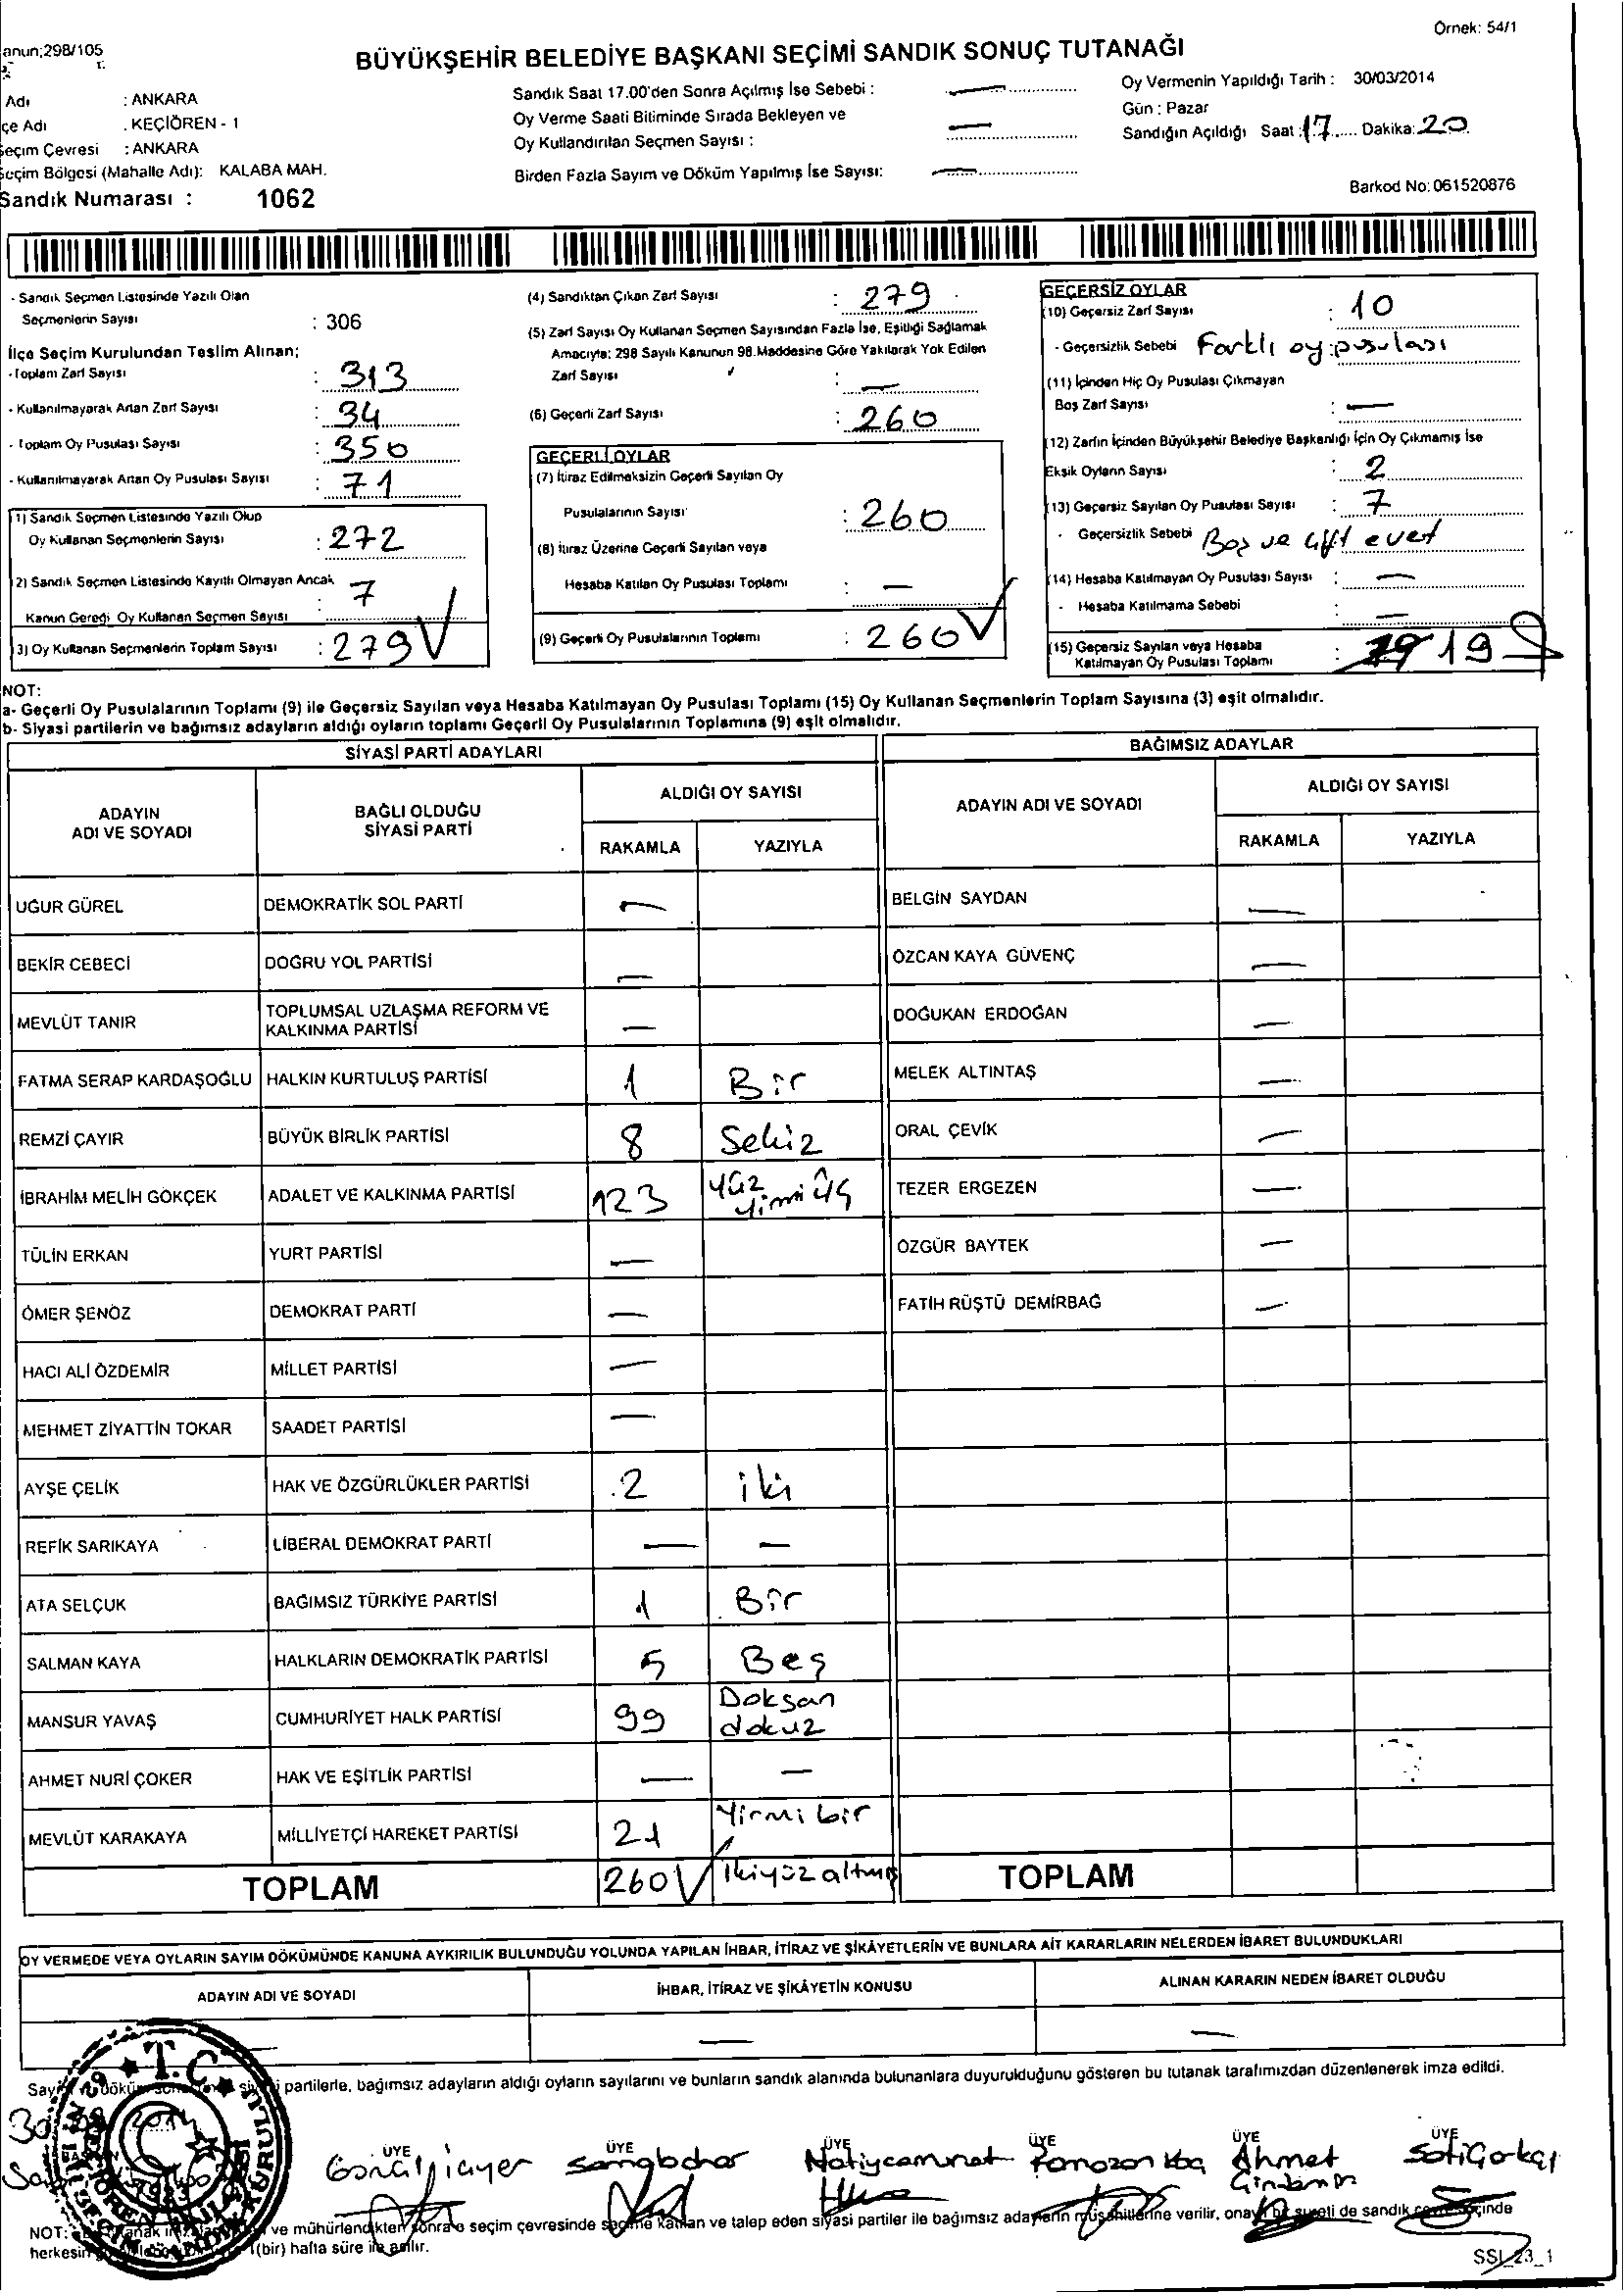 Örnek: 54/1
anun;298/105
BÜYÜKŞEHİR BELEDİYE BAŞKANI SEÇİMİ SANDIK SONUÇ TUTANAĞI
Adı : ANKARA
çe Adı . KEÇİÖREN - 1
Seçim Çevresi : ANKARA
Seçim Bölgesi (Mahalle Adı): KALABA MAH.
Sandık Numarası : 1062
Sandık Saat 17.00'den Sonra Açılmış İse Sebebi : —
Oy Verme Saati Bitiminde Sırada Bekleyen ve
Oy Kullandırılan Seçmen Sayısı : —
Birden Fazla Sayım ve Döküm Yapılmış İse Sayısı: —
Oy Vermenin Yapıldığı Tarih : 30/03/2014
Gün : Pazar
Sandığın Açıldığı Saat : 17 Dakika: 20
Barkod No: 061520876
- Sandık Seçmen Listesinde Yazılı Olan
Seçmenlerin Sayısı : 306
İlçe Seçim Kurulundan Teslim Alınan;
- Toplam Zarf Sayısı : 313
- Kullanılmayarak Artan Zarf Sayısı : 34
- Toplam Oy Pusulası Sayısı : 350
- Kullanılmayarak Artan Oy Pusulası Sayısı : 71
1) Sandık Seçmen Listesinde Yazılı Olup
Oy Kullanan Seçmenlerin Sayısı : 272
2) Sandık Seçmen Listesinde Kayıtlı Olmayan Ancak
Kanun Gereği Oy Kullanan Seçmen Sayısı : 7
3) Oy Kullanan Seçmenlerin Toplam Sayısı : 279
(4) Sandıktan Çıkan Zarf Sayısı : 279
(5) Zarf Sayısı Oy Kullanan Seçmen Sayısından Fazla İse, Eşitliği Sağlamak
Amacıyla; 298 Sayılı Kanunun 98.Maddesine Göre Yakılarak Yok Edilen
Zarf Sayısı : —
(6) Geçerli Zarf Sayısı : 260
GEÇERLİ OYLAR
(7) İtiraz Edilmeksizin Geçerli Sayılan Oy
Pusulalarının Sayısı : 260
(8) İtiraz Üzerine Geçerli Sayılan veya
Hesaba Katılan Oy Pusulası Toplamı : —
(9) Geçerli Oy Pusulalarının Toplamı : 260
GEÇERSİZ OYLAR
(10) Geçersiz Zarf Sayısı : 10
- Geçersizlik Sebebi Farklı oy pusulası
(11) İçinden Hiç Oy Pusulası Çıkmayan
Boş Zarf Sayısı : —
(12) Zarfın İçinden Büyükşehir Belediye Başkanlığı İçin Oy Çıkmamış İse
Eksik Oyların Sayısı : 2
(13) Geçersiz Sayılan Oy Pusulası Sayısı : 7
- Geçersizlik Sebebi Boş ve çift evet
(14) Hesaba Katılmayan Oy Pusulası Sayısı : —
- Hesaba Katılmama Sebebi : —
(15) Geçersiz Sayılan veya Hesaba
Katılmayan Oy Pusulası Toplamı : 19
NOT:
a- Geçerli Oy Pusulalarının Toplamı (9) ile Geçersiz Sayılan veya Hesaba Katılmayan Oy Pusulası Toplamı (15) Oy Kullanan Seçmenlerin Toplam Sayısına (3) eşit olmalıdır.
b- Siyasi partilerin ve bağımsız adayların aldığı oyların toplamı Geçerli Oy Pusulalarının Toplamına (9) eşit olmalıdır.
SİYASİ PARTİ ADAYLARI
ADAYIN ADI VE SOYADI BAĞLI OLDUĞU SİYASİ PARTİ ALDIĞI OY SAYISI
RAKAMLA YAZIYLA
UĞUR GÜREL DEMOKRATİK SOL PARTİ —
BEKİR CEBECİ DOĞRU YOL PARTİSİ —
MEVLÜT TANIR TOPLUMSAL UZLAŞMA REFORM VE KALKINMA PARTİSİ —
FATMA SERAP KARDAŞOĞLU HALKIN KURTULUŞ PARTİSİ 1 Bir
REMZİ ÇAYIR BÜYÜK BİRLİK PARTİSİ 8 Sekiz
İBRAHİM MELİH GÖKÇEK ADALET VE KALKINMA PARTİSİ 123 Yüz yirmi üç
TÜLİN ERKAN YURT PARTİSİ —
ÖMER ŞENÖZ DEMOKRAT PARTİ —
HACI ALİ ÖZDEMİR MİLLET PARTİSİ —
MEHMET ZİYATTİN TOKAR SAADET PARTİSİ —
AYŞE ÇELİK HAK VE ÖZGÜRLÜKLER PARTİSİ 2 iki
REFİK SARIKAYA LİBERAL DEMOKRAT PARTİ — —
ATA SELÇUK BAĞIMSIZ TÜRKİYE PARTİSİ 1 Bir
SALMAN KAYA HALKLARIN DEMOKRATİK PARTİSİ 5 Beş
MANSUR YAVAŞ CUMHURİYET HALK PARTİSİ 99 Doksan dokuz
AHMET NURİ ÇOKER HAK VE EŞİTLİK PARTİSİ — —
MEVLÜT KARAKAYA MİLLİYETÇİ HAREKET PARTİSİ 21 Yirmi bir
TOPLAM 260 İkiyüz altmış
BAĞIMSIZ ADAYLAR
ADAYIN ADI VE SOYADI ALDIĞI OY SAYISI
RAKAMLA YAZIYLA
BELGİN SAYDAN —
ÖZCAN KAYA GÜVENÇ —
DOĞUKAN ERDOĞAN —
MELEK ALTINTAŞ —
ORAL ÇEVİK —
TEZER ERGEZEN —
ÖZGÜR BAYTEK —
FATİH RÜŞTÜ DEMİRBAĞ —
TOPLAM
OY VERMEDE VEYA OYLARIN SAYIM DÖKÜMÜNDE KANUNA AYKIRILIK BULUNDUĞU YOLUNDA YAPILAN İHBAR, İTİRAZ VE ŞİKÂYETLERİN VE BUNLARA AİT KARARLARIN NELERDEN İBARET BULUNDUKLARI
ADAYIN ADI VE SOYADI İHBAR, İTİRAZ VE ŞİKÂYETİN KONUSU ALINAN KARARIN NEDEN İBARET OLDUĞU
— — —
partilerle, bağımsız adayların aldığı oyların sayılarını ve bunların sandık alanında bulunanlara duyurulduğunu gösteren bu tutanak tarafımızdan düzenlenerek imza edildi.
T.C.
ÜYE ÜYE ÜYE ÜYE ÜYE ÜYE
Ahmet
NOT: ve mühürlendikten sonra seçim çevresinde seçime katılan ve talep eden siyasi partiler ile bağımsız adayların müşahitlerine verilir, onaylı bir sureti de sandık çevresi içinde
herkesin (bir) hafta süre ile asılır.
SSI_23_1